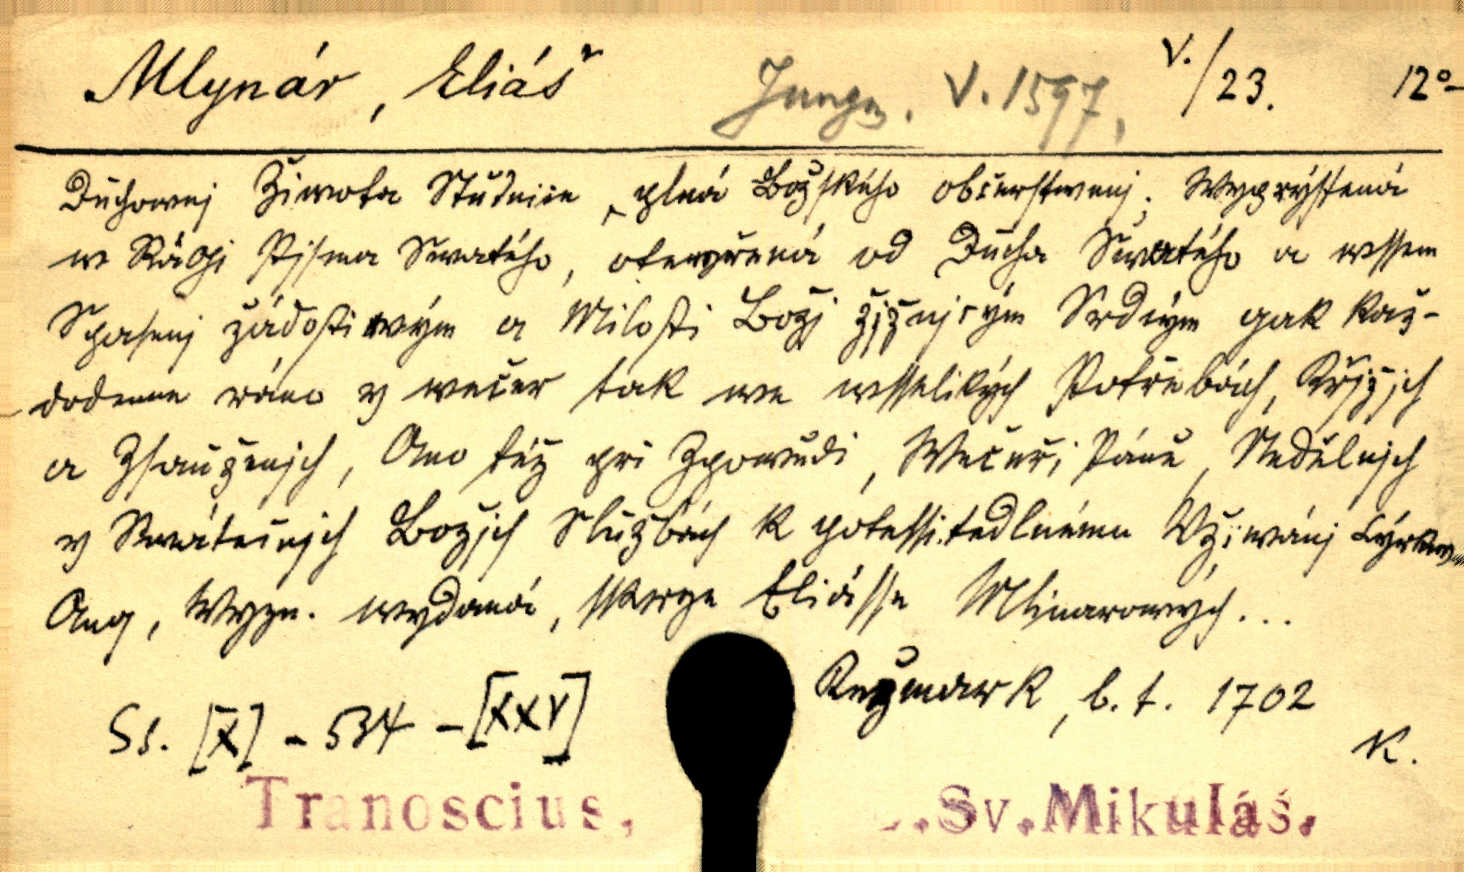 Mlynár, Eliáš Jungm. V. 1597, V./23. 12°
Duchownj Žiwota Studnice, plná Božského občerstwenj; Wyprýsstená
w Rági Pjsma Swatého, otewřená od Ducha Swatého a wssem
Spasenj žádostiwým a Milosti Božj žjznjcým Srdcým gak kaž-
dodenne ráno y wečer tak we wsselikých Potřebách, Křjžjch
a Zsauženjch, Ano též pri Zpowědi, Wečeři Páně, Nedělnjch
y Swátečnjch Božjch Službách k potessitedlnému Vžiwánj Cýrkwe
Aug, Wyzn. wydaná, skrze Eliásse Mlinarowých...
Kežmark, b. t. 1702
Ss. [X] - 534 - [XXV]
K.
Tranoscius, .Sv.Mikuláš.